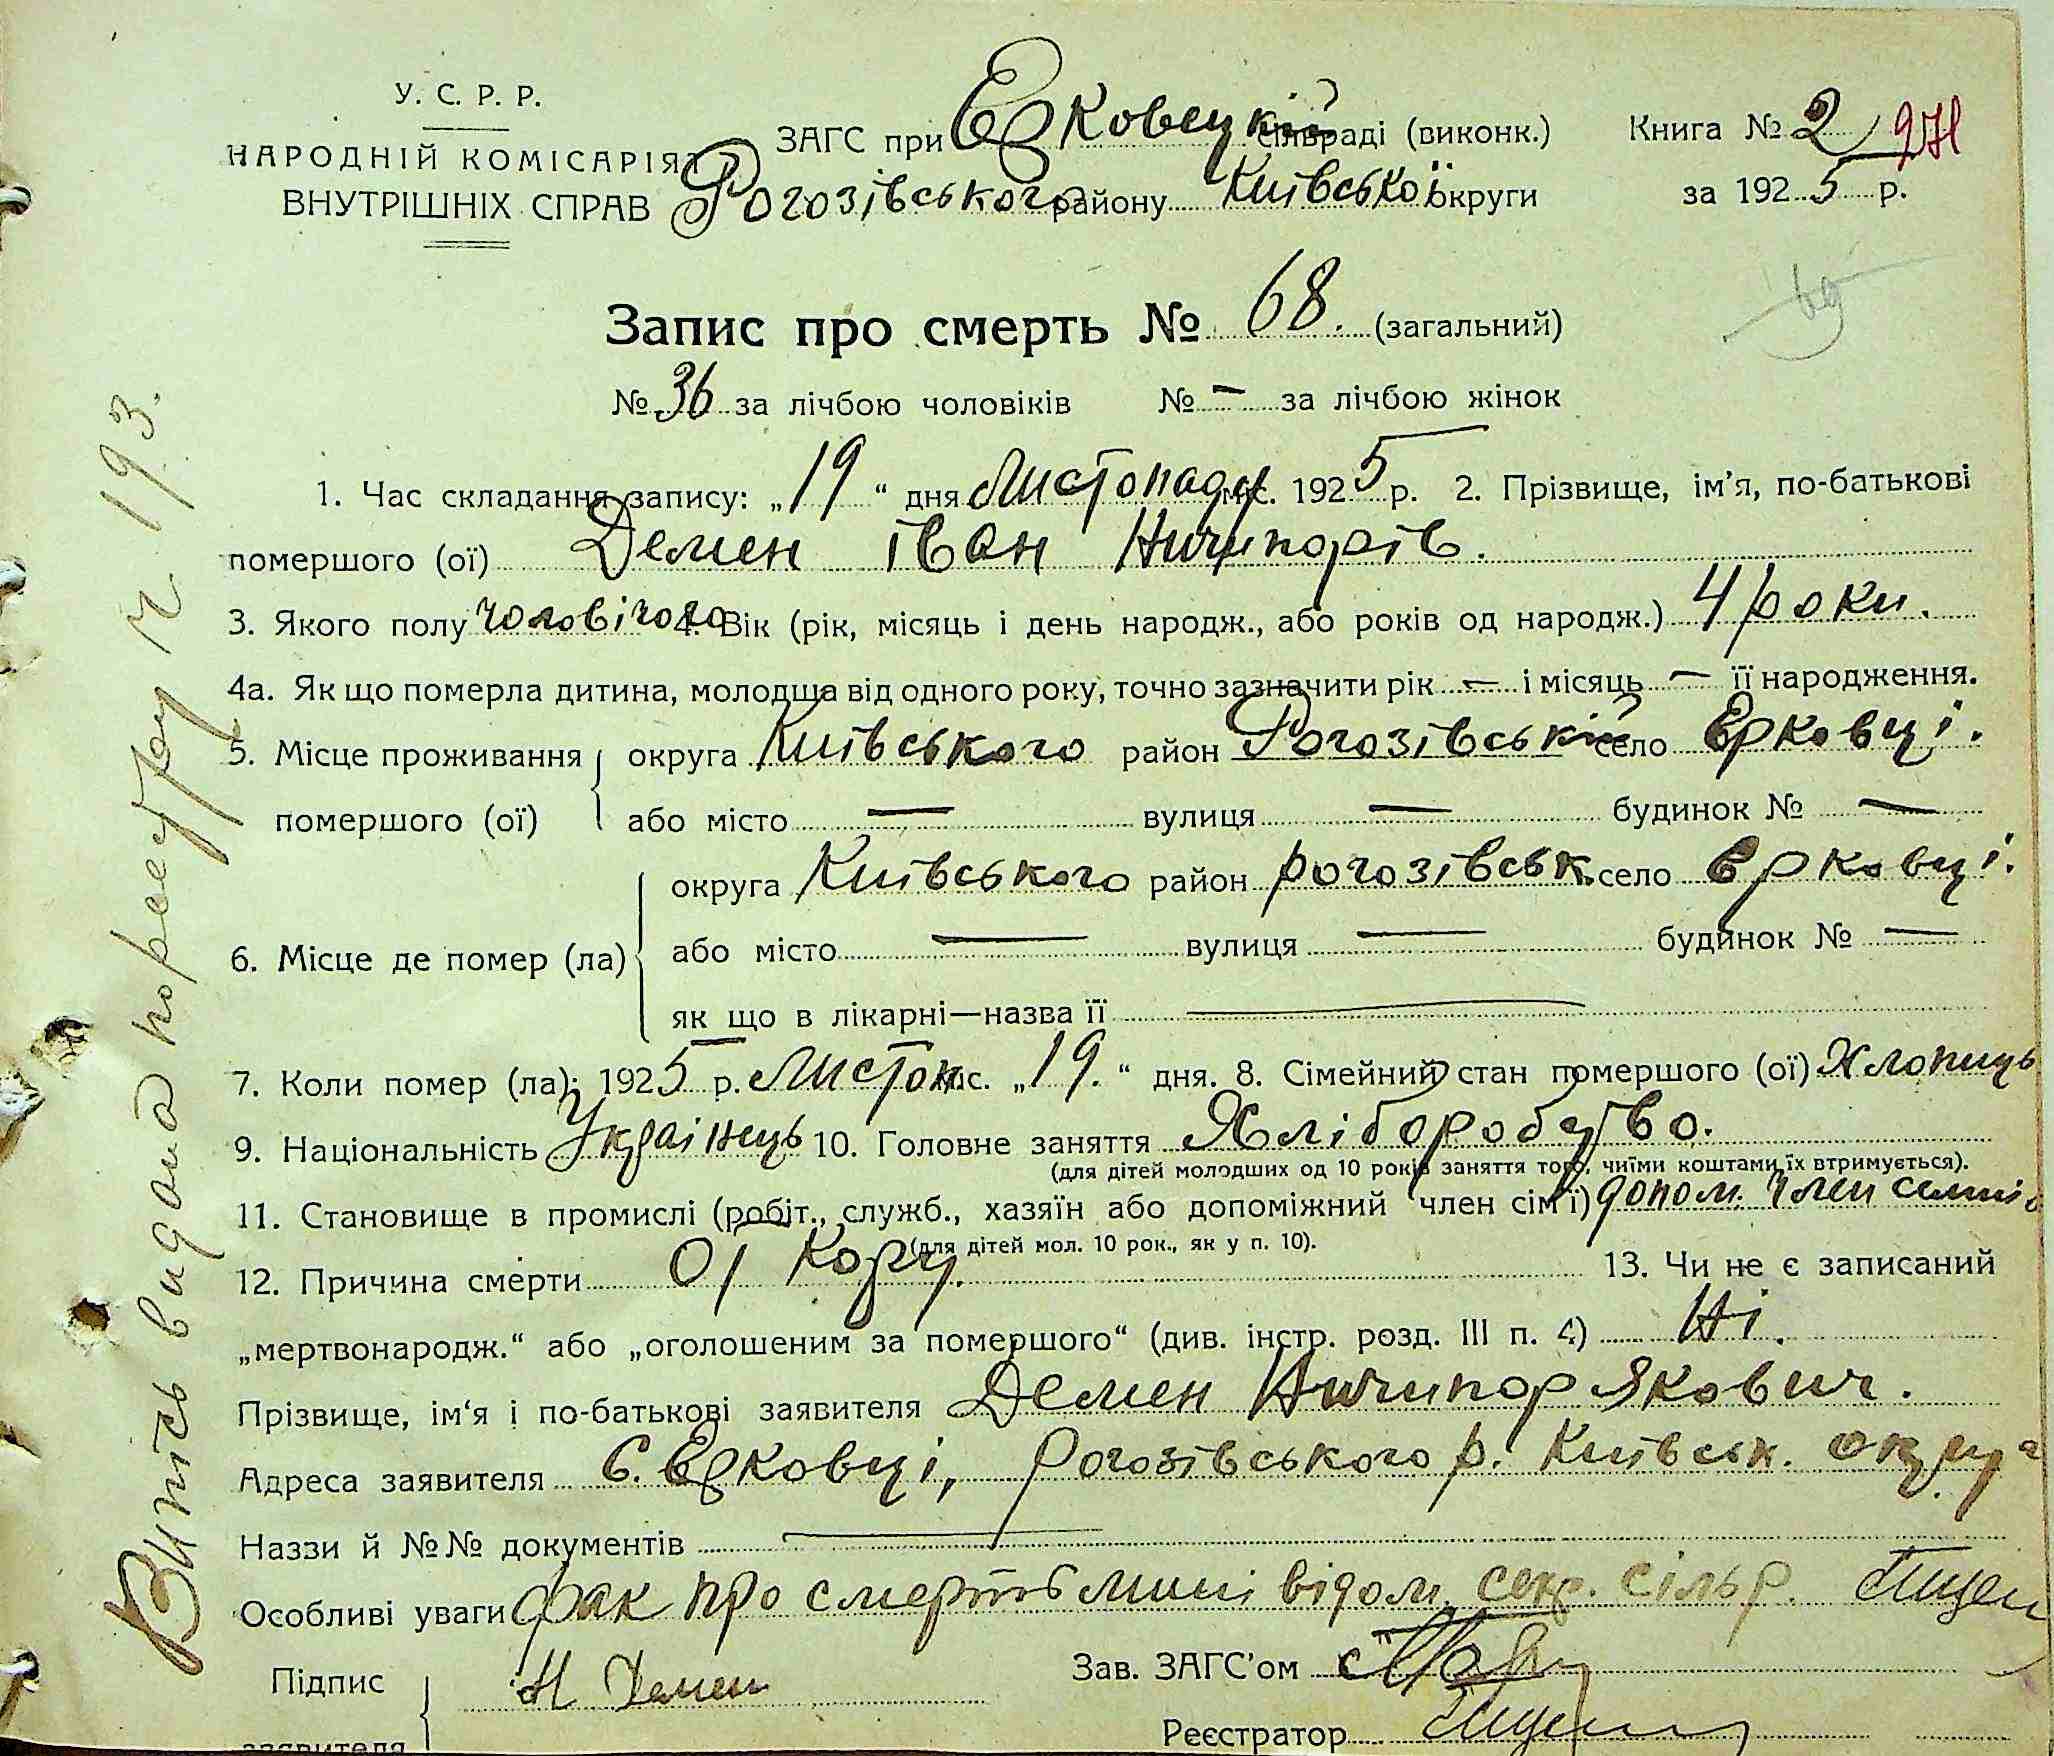 У. С. Р. Р.
НАРОДНІЙ КОМІСАРІЯТ
ВНУТРІШНІХ СПРАВ
ЗАГС при Ерковецкій сільраді (виконк.)
Рогозівського району Київської округи
Книга № 2 971
за 1925 р.
69
Запис про смерть № 68. (загальний)
№ 36 за лічбою чоловіків № — за лічбою жінок
1. Час складання запису: „19“ дня Листопаду міс. 1925 р. 2. Прізвище, ім'я, по-батькові
помершого (ої) Демен Іван Ничипорів.
3. Якого полу чоловічого 4. Вік (рік, місяць і день народж., або років од народж.) 4 роки.
4а. Як що померла дитина, молодша від одного року, точно зазначити рік — і місяць — її народження.
5. Місце проживання округа Київського район Рогозівський село Ерковці.
помершого (ої) або місто — вулиця — будинок № —
округа Київського район рогозівськ. село Ерковці.
6. Місце де помер (ла) або місто — вулиця — будинок № —
як що в лікарні—назва її —
7. Коли помер (ла): 1925 р. Листоп міс. „19.“ дня. 8. Сімейний стан помершого (ої) Хлопиць
9. Національність Українець 10. Головне заняття Хліборобство.
(для дітей молодших од 10 років заняття того, чиїми коштами їх втримується).
11. Становище в промислі (робіт., служб., хазяїн або допоміжний член сім'ї) допом. член семьі
(для дітей мол. 10 рок., як у п. 10).
12. Причина смерти От Кору. 13. Чи не є записаний
„мертвонародж.“ або „оголошеним за помершого“ (див. інстр. розд. III п. 4) Ні.
Прізвище, ім'я і по-батькові заявителя Демен Ничипор Якович.
Адреса заявителя с. Ерковці, Рогозівського р. Київськ. округ
Наззи й №№ документів —
Особливі уваги фак про смерть мині відом. секр. сільр.
Підпис
заявителя
Н Демен
Зав. ЗАГС'ом
Реєстратор
Випись видана по реестру ч 193.